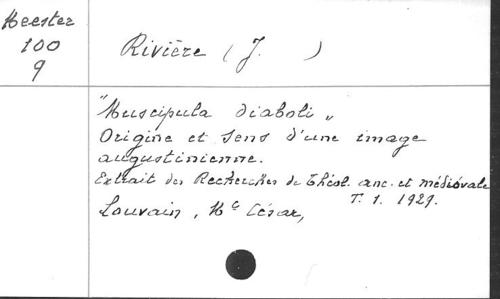 Meester
100
9
Rivière (J. )
"Muscipula diaboli„
Origine et sens d'une image
augustinienne.
Extrait des Recherches de Théol. anc. et médiévale
T. 1. 1929.
Louvain, Mt César,